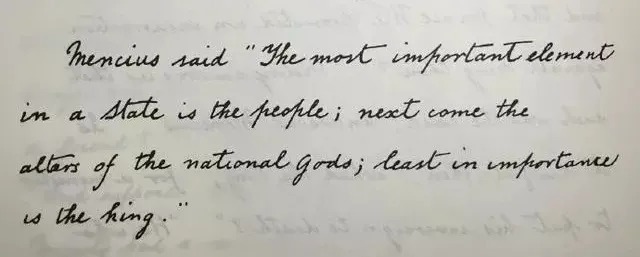 Mencius said "The most important element
in a state is the people; next come the
altars of the national Gods; least in importance
is the king."